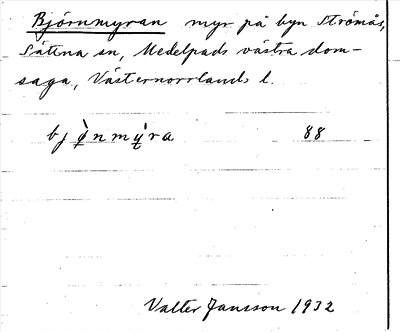 Björnmyran myr på byn Strömås,
Sättna sn, Medelpads västra dom-
saga, Västernorrlands l.
bjø̀nmý̨ra 88
Valter Jansson 1932